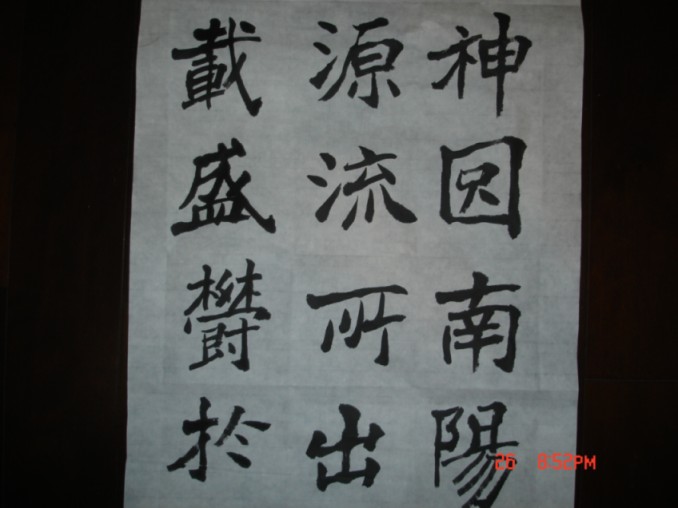 神囧南陽
源流所出
載盛欝扵
26 8:52PM